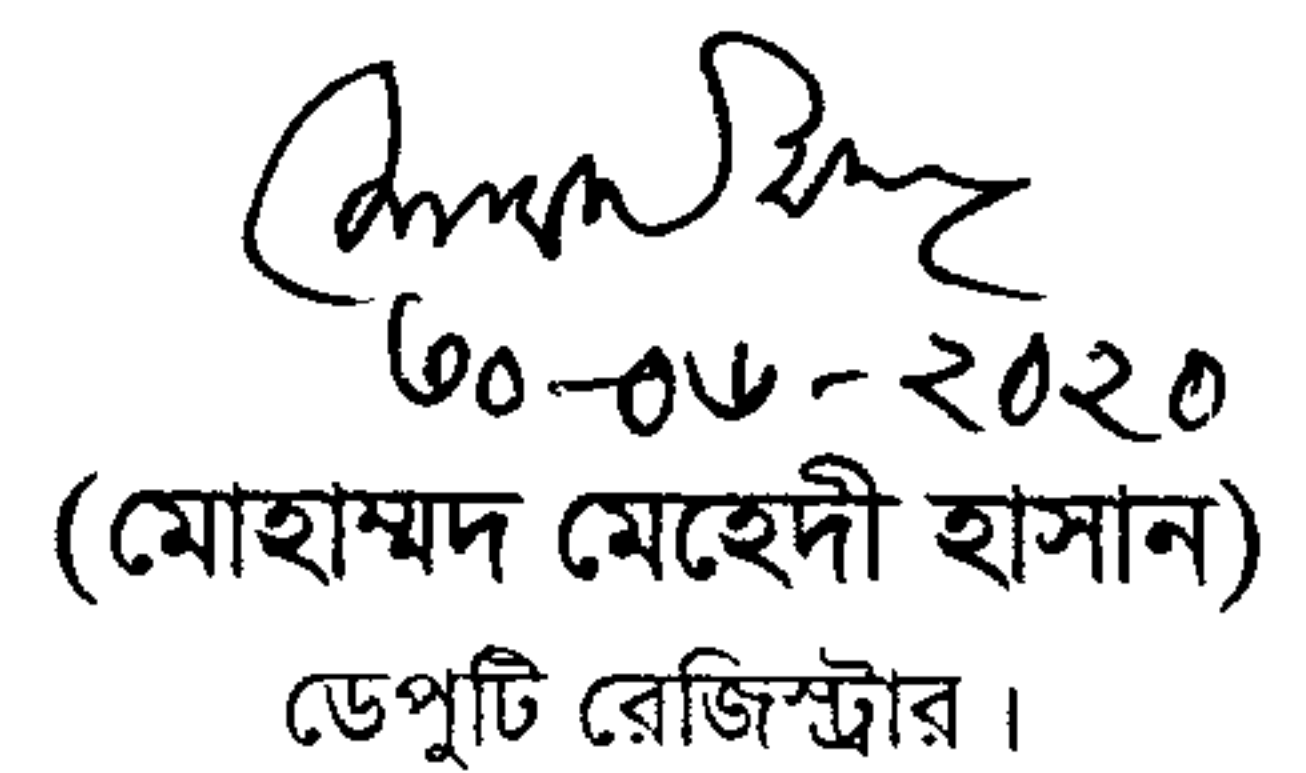 ৩০-০৬-২০২০
(মোহাম্মদ মেহেদী হাসান)
ডেপুটি রেজিস্ট্রার।